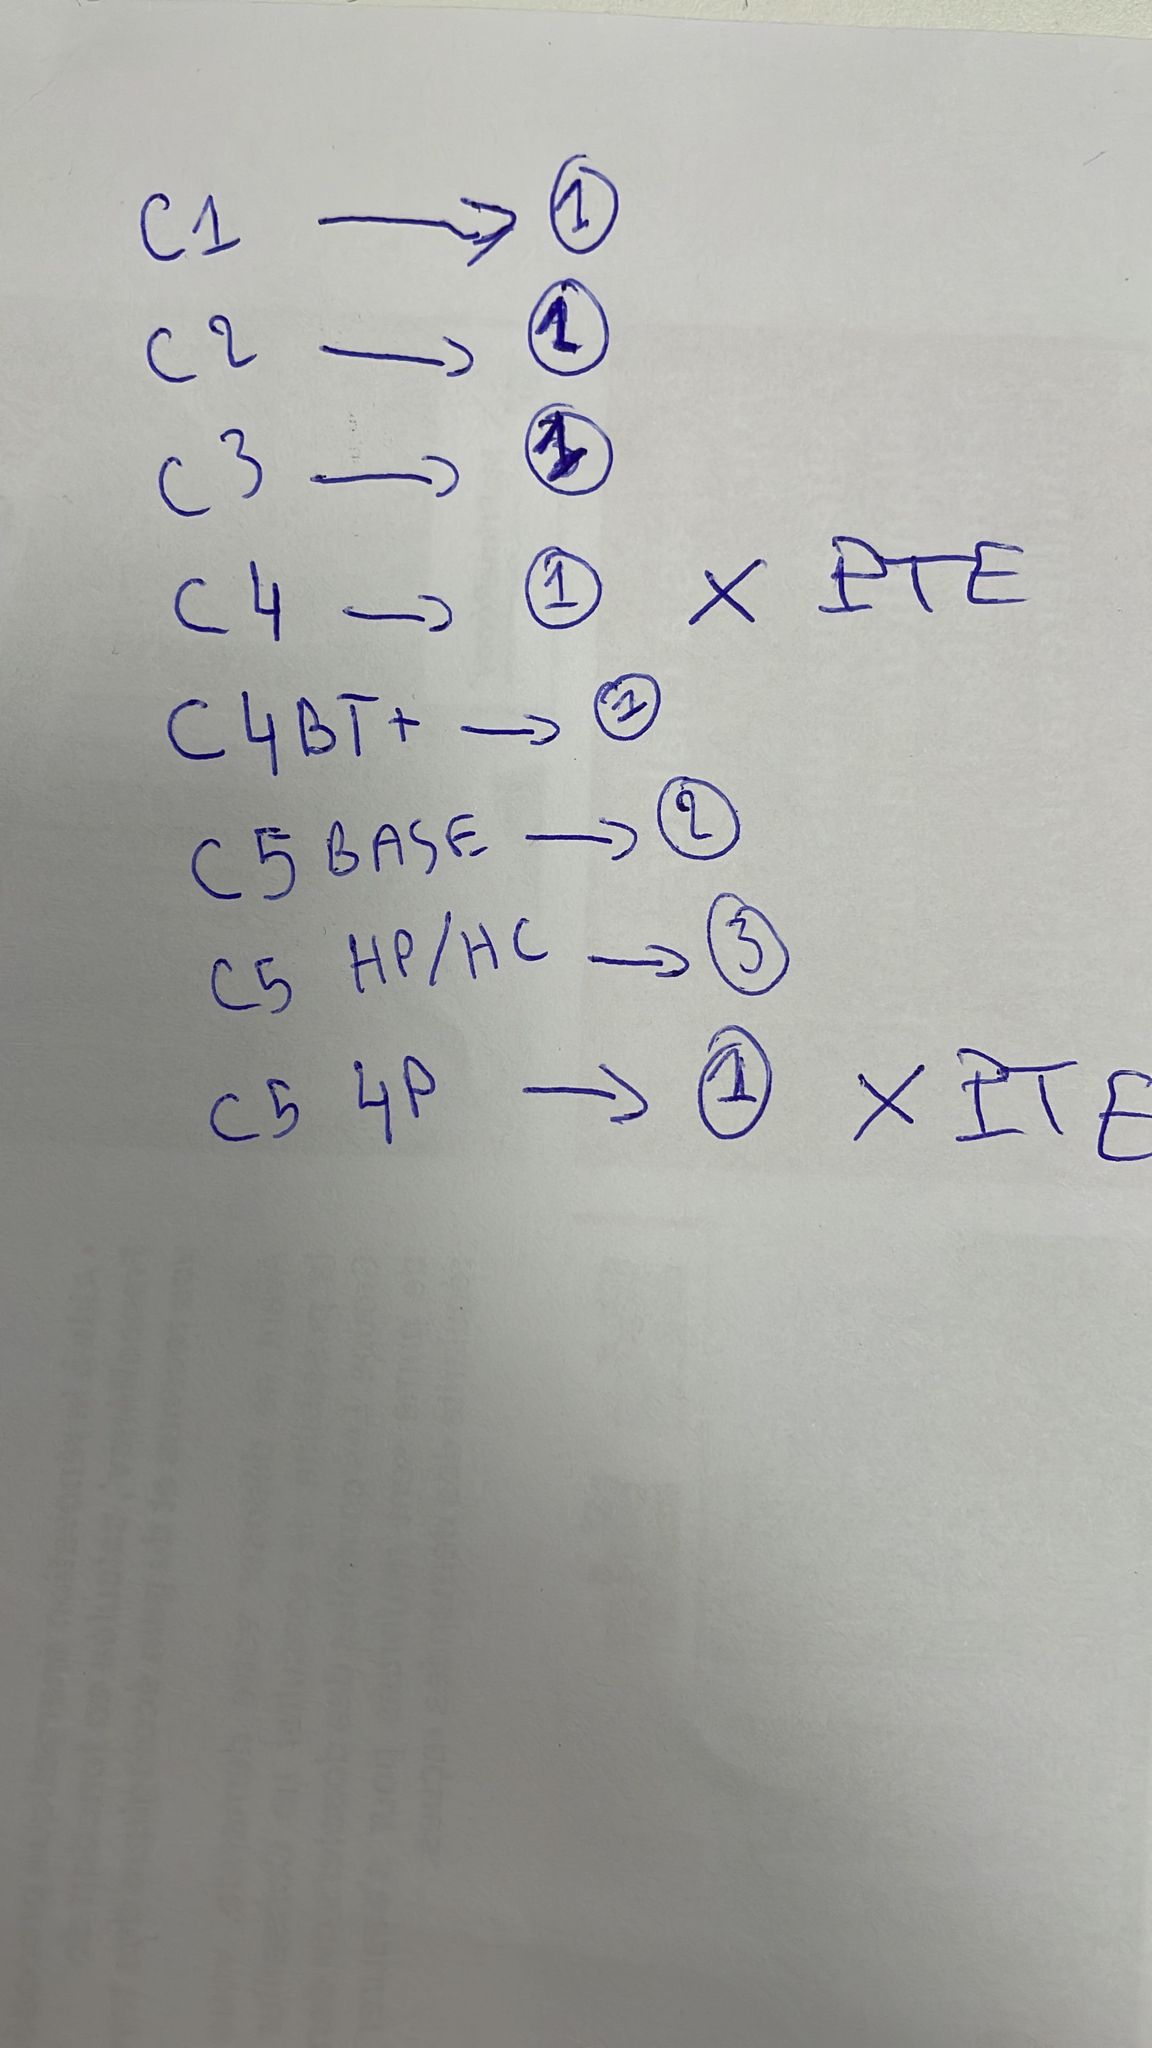 C1 → ①
C2 → ①
C3 → ①
C4 → ① X PTE
C4BT+ → ①
C5 BASE → ②
C5 HP/HC → ③
C5 4P → ① X PTE